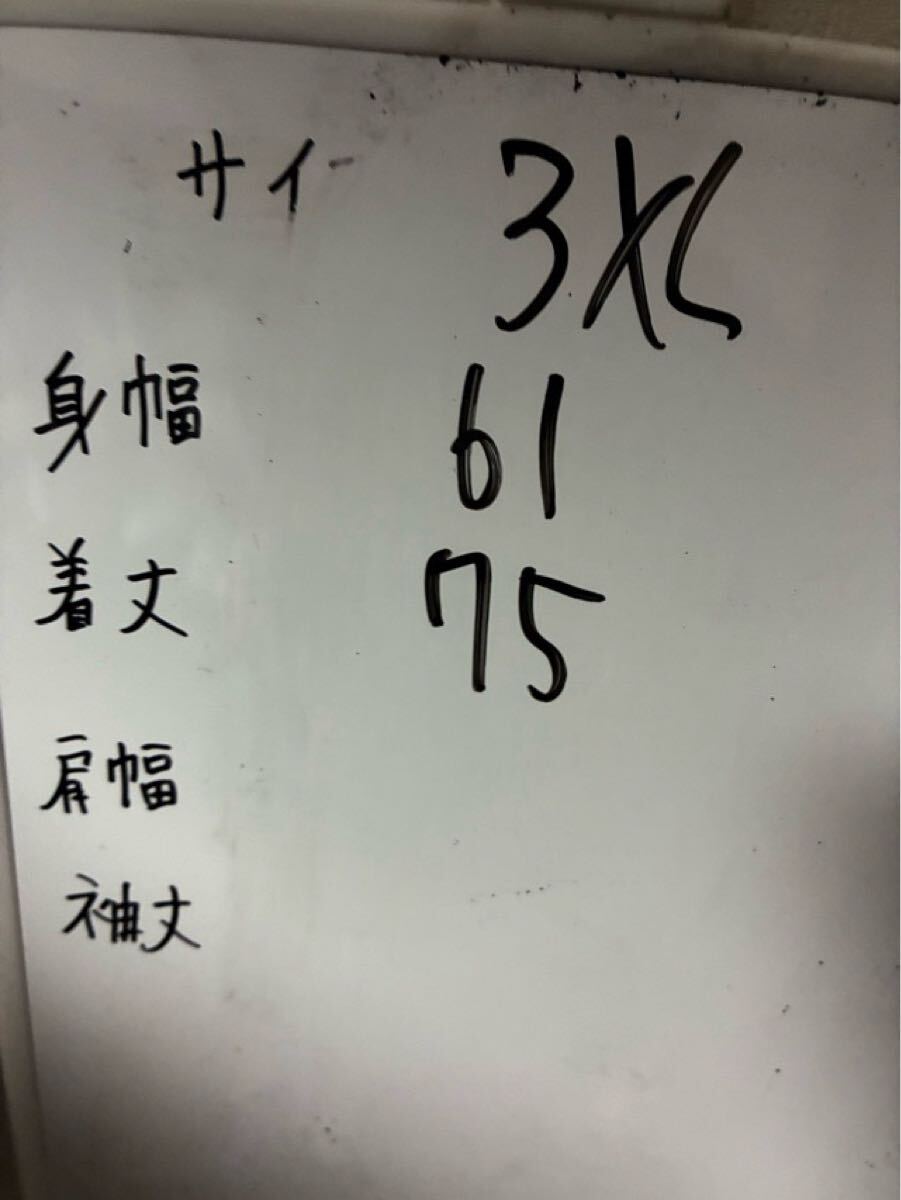 サイ 3XL
身幅 61
着丈 75
肩幅
袖丈